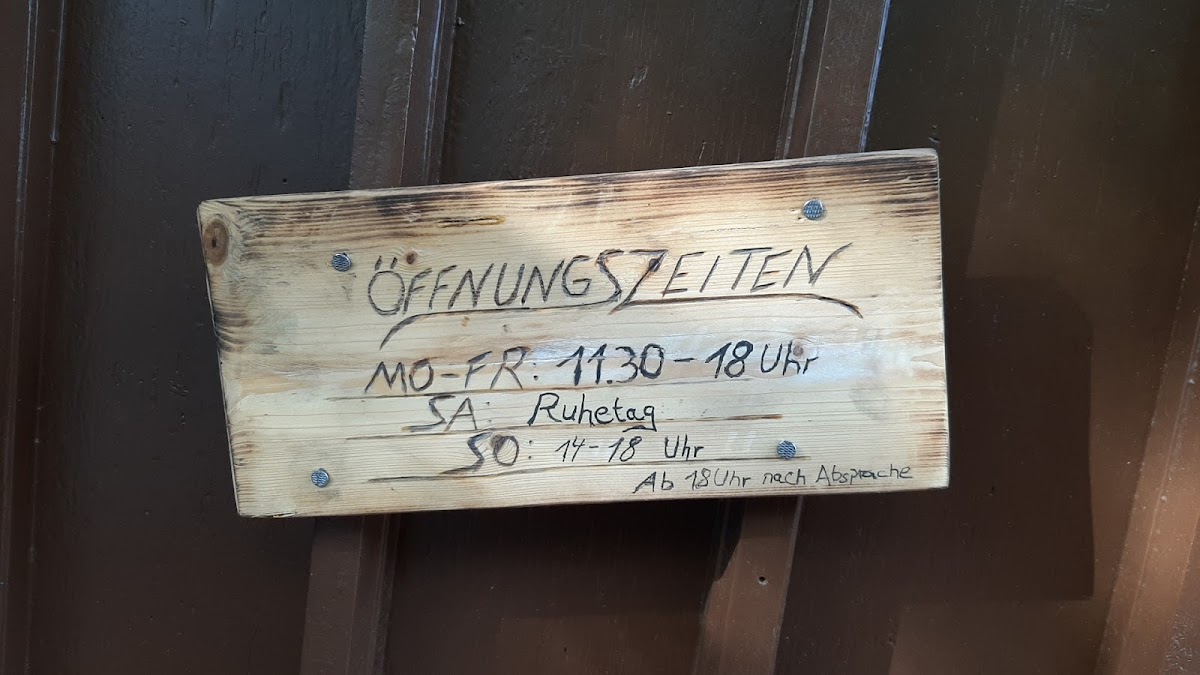 ÖFFNUNGSZEITEN
MO-FR: 11.30-18 Uhr
SA: Ruhetag
SO: 14-18 Uhr
Ab 18 Uhr nach Absprache